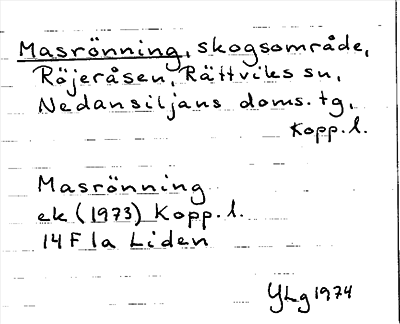 Masrönning, skogsområde,
Röjeråsen, Rättviks sn,
Nedansiljans doms. tg,
Kopp. l.
Masrönning
ek (1973) Kopp. l.
14 F 1a Liden
YLg 1974